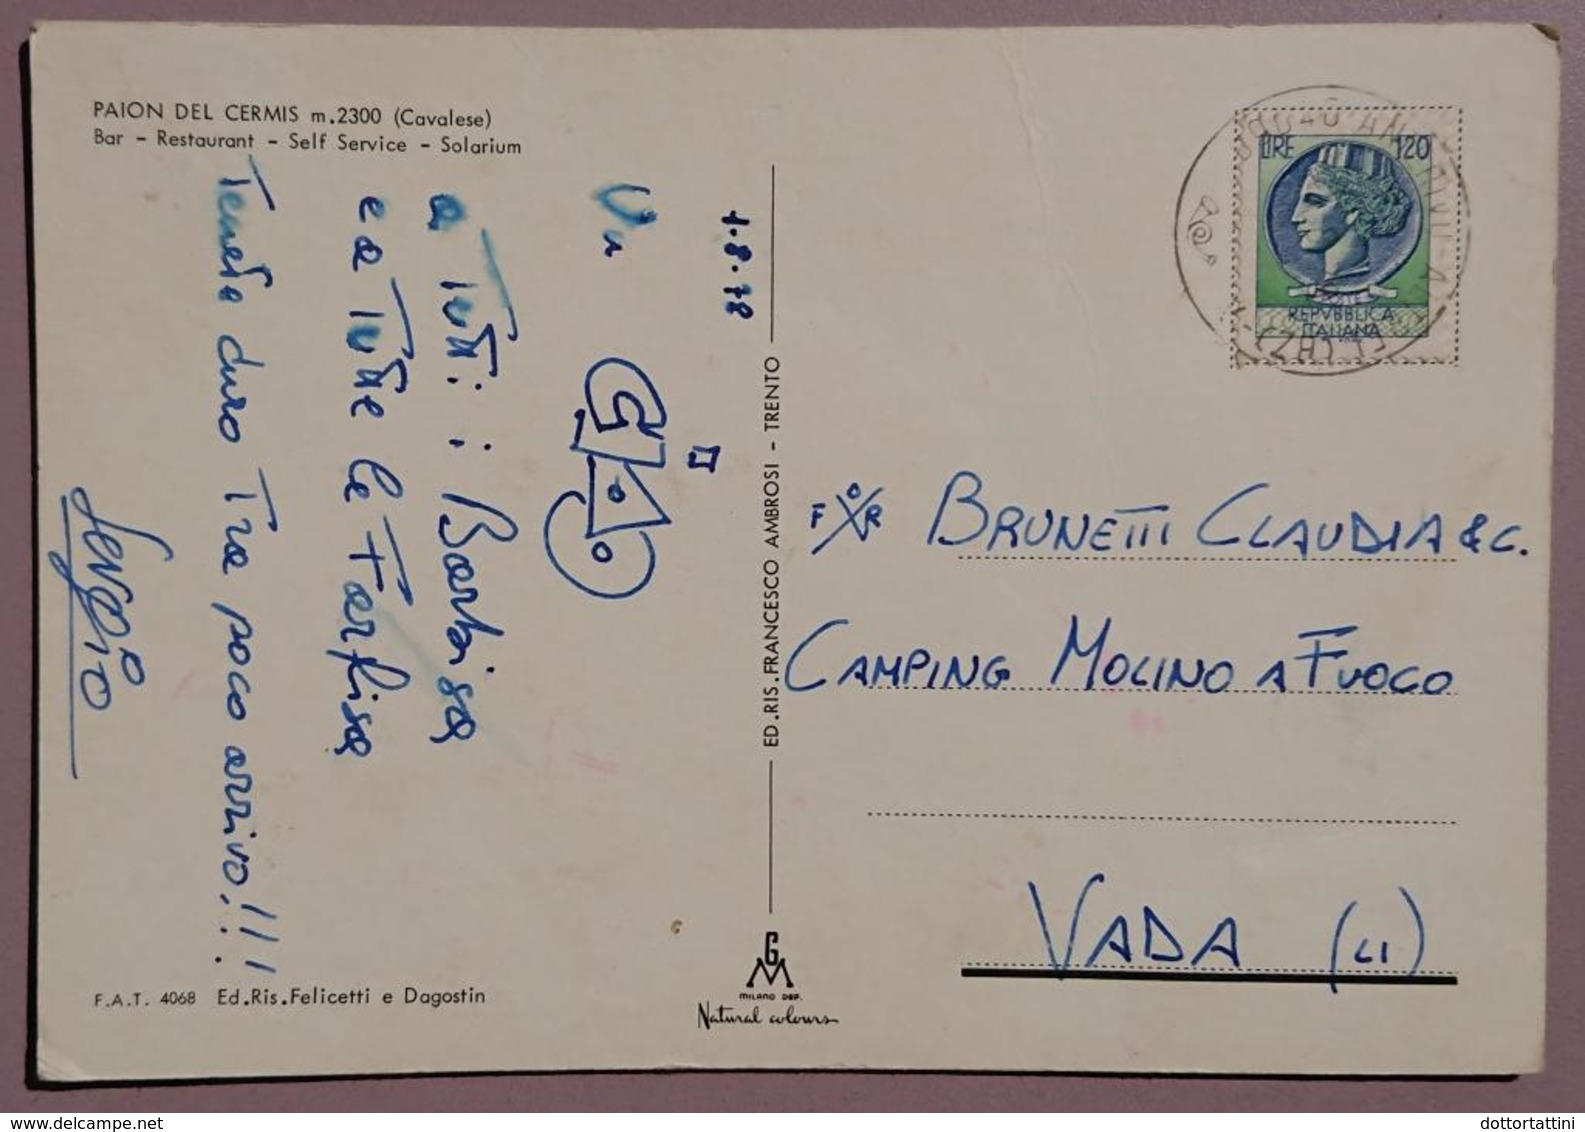 PAION DEL CERMIS m.2300 (Cavalese)
Bar - Restaurant - Self Service - Solarium
1.8.78
Un
CIAO
a Tutti i Barbisa
e a Tutte le Farfisa
Tenete duro Tra poco arrivo!!!
Sergio
ED.RIS.FRANCESCO AMBROSI - TRENTO
LIRE 120
REPVBBLICA
ITALIANA
FOR BRUNETTI CLAUDIA & C.
CAMPING MOLINO A FUOCO
VADA (LI)
F.A.T. 4068 Ed.Ris.Felicetti e Dagostin
G
M
MILANO DEP.
Natural colours
dottortattini